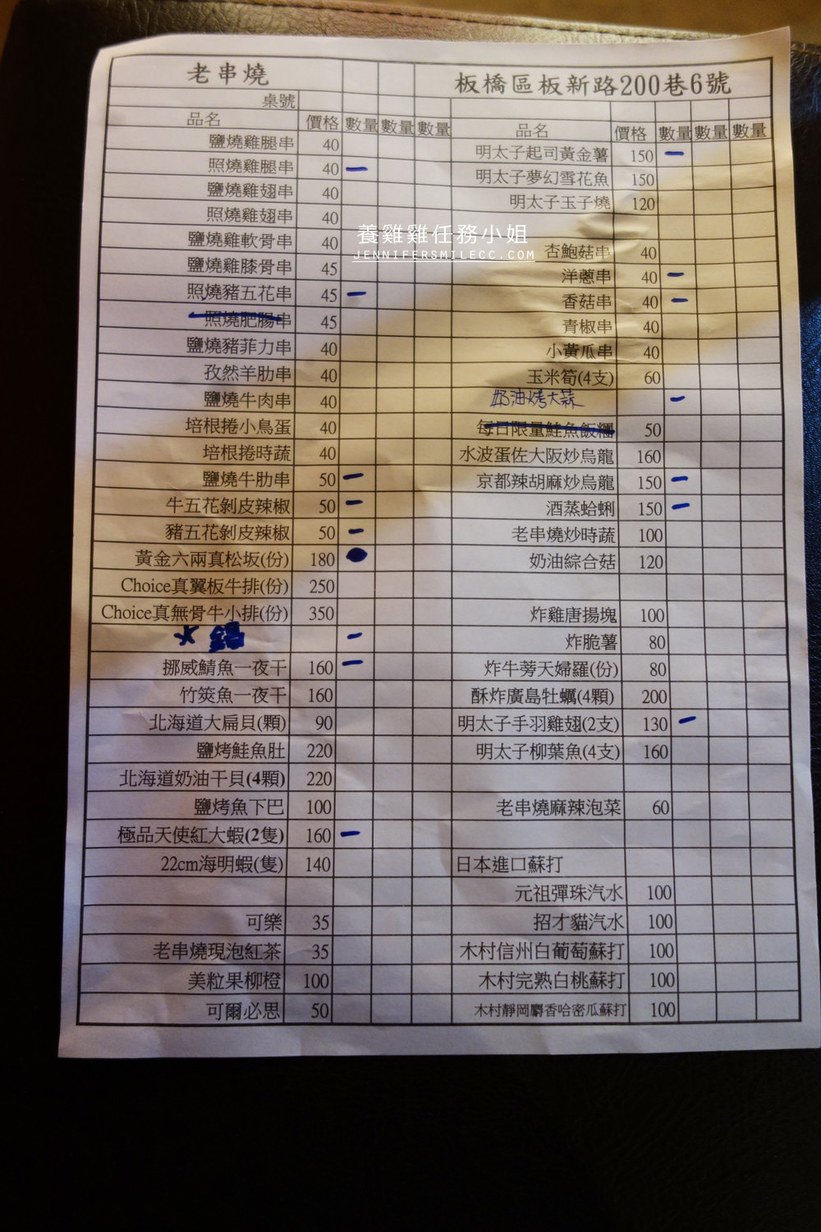 老串燒 板橋區板新路200巷6號
桌號
品名 價格 數量 數量 數量 品名 價格 數量 數量 數量
鹽燒雞腿串 40
照燒雞腿串 40 一
鹽燒雞翅串 40
照燒雞翅串 40
鹽燒雞軟骨串 40
鹽燒雞膝骨串 45
照燒豬五花串 45 一
照燒肥腸串 45
鹽燒豬菲力串 40
孜然羊肋串 40
鹽燒牛肉串 40
培根捲小鳥蛋 40
培根捲時蔬 40
鹽燒牛肋串 50 一
牛五花剝皮辣椒 50 一
豬五花剝皮辣椒 50 一
黃金六兩真松坂(份) 180
Choice真翼板牛排(份) 250
Choice真無骨牛小排(份) 350
一
挪威鯖魚一夜干 160 一
竹筴魚一夜干 160
北海道大扁貝(顆) 90
鹽烤鮭魚肚 220
北海道奶油干貝(4顆) 220
鹽烤魚下巴 100
極品天使紅大蝦(2隻) 160 一
22cm海明蝦(隻) 140
可樂 35
老串燒現泡紅茶 35
美粒果柳橙 100
可爾必思 50
明太子起司黃金薯 150 一
明太子夢幻雪花魚 150
明太子玉子燒 120
杏鮑菇串 40
洋蔥串 40 一
香菇串 40 一
青椒串 40
小黃瓜串 40
玉米筍(4支) 60
奶油烤大蒜 一
每日限量鮭魚飯糰 50
水波蛋佐大阪炒烏龍 160
京都辣胡麻炒烏龍 150 一
酒蒸蛤蜊 150 一
老串燒炒時蔬 100
奶油綜合菇 120
炸雞唐揚塊 100
炸脆薯 80
炸牛蒡天婦羅(份) 80
酥炸廣島牡蠣(4顆) 200
明太子手羽雞翅(2支) 130 一
明太子柳葉魚(4支) 160
老串燒麻辣泡菜 60
日本進口蘇打
元祖彈珠汽水 100
招才貓汽水 100
木村信州白葡萄蘇打 100
木村完熟白桃蘇打 100
木村靜岡麝香哈密瓜蘇打 100
養雞雞任務小姐
JENNIFERSMILECC.COM